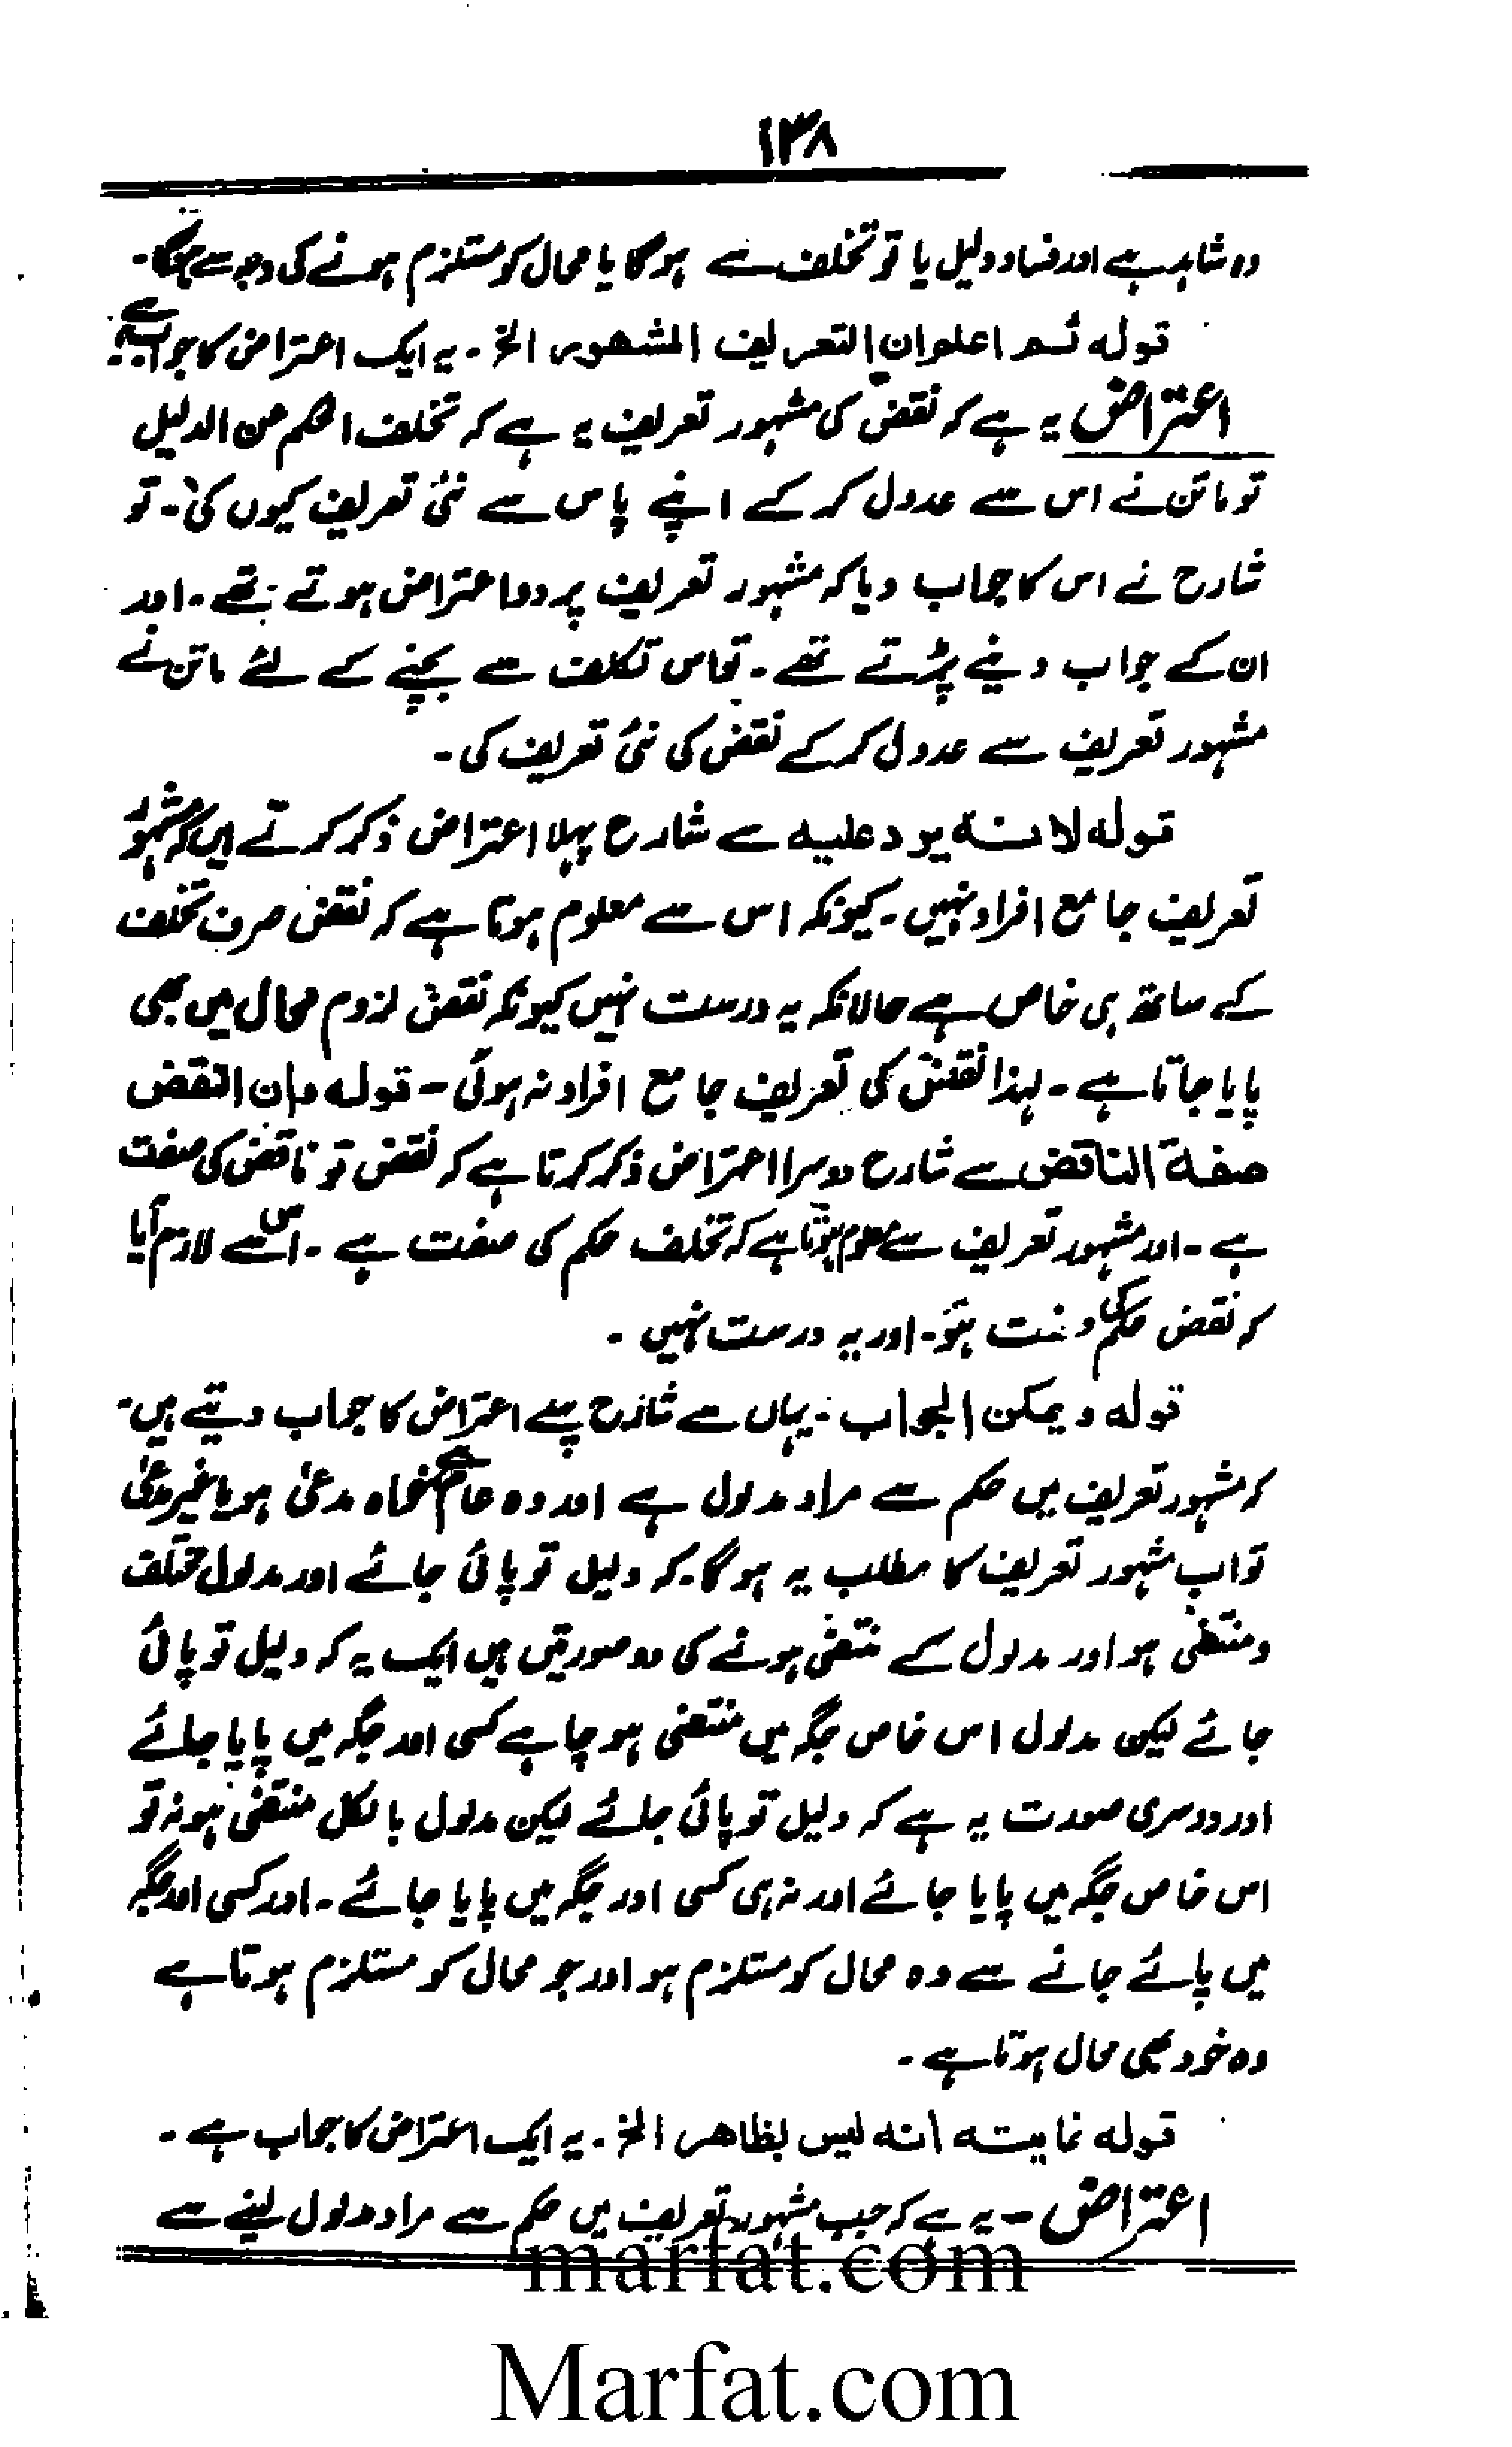 ۱۳۸
وہ شاہد ہے اور فساد دلیل یا تو تخلف سے ہوگا یا محال کو مستلزم ہونے کی وجہ سے ہوگا۔
قولہ ثم اعلم ان التعریف المشھور الخ ۔ یہ ایک اعتراض کا جواب ہے
اعتراض یہ ہے کہ نقض کی مشہور تعریف یہ ہے کہ تخلف الحکم عن الدلیل
تو ماتن نے اس سے عدول کر کے اپنے پاس سے نئی تعریف کیوں کی۔ تو
شارح نے اس کا جواب دیا کہ مشہور تعریف پر دو اعتراض ہوتے تھے۔ اور
ان کے جواب دینے پڑتے تھے۔ تو اس تکلف سے بچنے کے لئے ماتن نے
مشہور تعریف سے عدول کر کے نقض کی نئی تعریف کی۔
قولہ لانہ یرد علیہ سے شارح پہلا اعتراض ذکر کرتے ہیں کہ مشہور
تعریف جامع افراد نہیں۔ کیونکہ اس سے معلوم ہوتا ہے کہ نقض صرف تخلف
کے ساتھ ہی خاص ہے حالانکہ یہ درست نہیں کیونکہ نقض لزوم محال میں بھی
پایا جاتا ہے۔ لہذا نقض کی تعریف جامع افراد نہ ہوئی۔ قولہ وان النقض
صفۃ الناقض سے شارح دوسرا اعتراض ذکر کرتا ہے کہ نقض تو ناقض کی صفت
ہے۔ اور مشہور تعریف سے معلوم ہوتا ہے کہ تخلف حکم کی صفت ہے۔ اس سے لازم آیا
کہ نقض حکم کی صفت ہو۔ اور یہ درست نہیں۔
قولہ ویمکن الجواب ۔ یہاں سے شارح پہلے اعتراض کا جواب دیتے ہیں۔
کہ مشہور تعریف میں حکم سے مراد مدلول ہے اور وہ عام ہے خواہ مدعیٰ ہو یا غیر مدعیٰ
تو اب مشہور تعریف کا مطلب یہ ہوگا۔ کہ دلیل تو پائی جائے اور مدلول مختلف
ومنتفی ہو اور مدلول کے منتفی ہونے کی دو صورتیں ہیں ایک یہ کہ دلیل تو پائی
جائے لیکن مدلول اس خاص جگہ میں منتفی ہو چاہے کسی اور جگہ میں پایا جائے
اور دوسری صورت یہ ہے کہ دلیل تو پائی جائے لیکن مدلول بالکل منتفی ہو نہ تو
اس خاص جگہ میں پایا جائے اور نہ ہی کسی اور جگہ میں پایا جائے۔ اور کسی اور جگہ
میں پائے جانے سے وہ محال کو مستلزم ہو اور جو محال کو مستلزم ہوتا ہے
وہ خود بھی محال ہوتا ہے۔
قولہ غایتہ انہ لیس بظاھر الخ ۔ یہ ایک اعتراض کا جواب ہے۔
اعتراض ۔ یہ ہے کہ جب مشہور تعریف میں حکم سے مراد مدلول لینے سے
marfat.com
Marfat.com